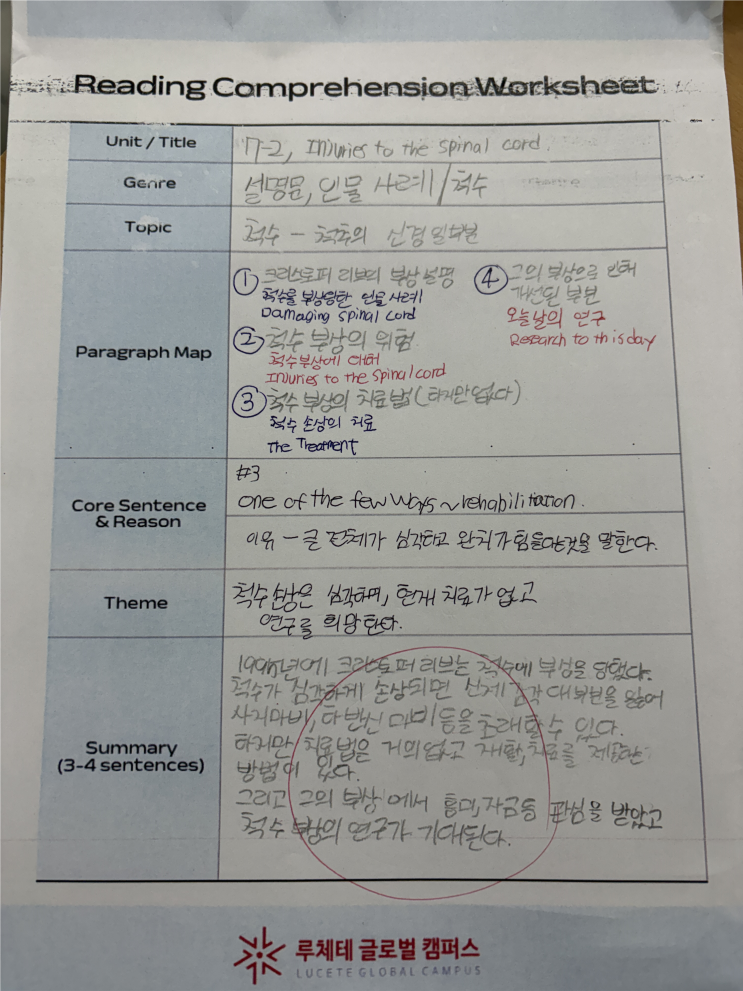 Reading Comprehension Worksheet
Unit / Title
17-2, Injuries to the spinal cord.
Genre
설명문, 인물 사례 / 척수
Topic
척수 - 척추의 신경 일부분
Paragraph Map
① 크리스토퍼 리브의 부상 설명
척수를 부상당한 인물 사례
Damaging spinal cord
② 척수 부상의 위험
척수부상에 대해
Injuries to the spinal cord
③ 척수 부상의 치료법 (하지만 없다)
척수 손상의 치료
The Treatment
④ 그의 부상으로 인해
개선된 부분
오늘날의 연구
Research to this day
Core Sentence
& Reason
#3
one of the few ways ~ rehabilitation.
이유 - 글 전체가 심각하고 완치가 힘들다는것을 말한다.
Theme
척수 손상은 심각하며, 현재 치료가 없고
연구를 희망한다.
Summary
(3-4 sentences)
크리스토퍼 리브는 척수에 부상을 당했다.
척수가 심각하게 손상되면 신체 감각 대부분을 잃어
사지마비, 하반신 마비 등을 초래할 수 있다.
하지만 치료법은 거의 없고 재활, 치료를 제공하는
방법이 있다.
그리고 그의 부상에서 흥미, 자금 등 관심을 받았고
척수 부상의 연구가 기대된다.
루체테 글로벌 캠퍼스
LUCETE GLOBAL CAMPUS